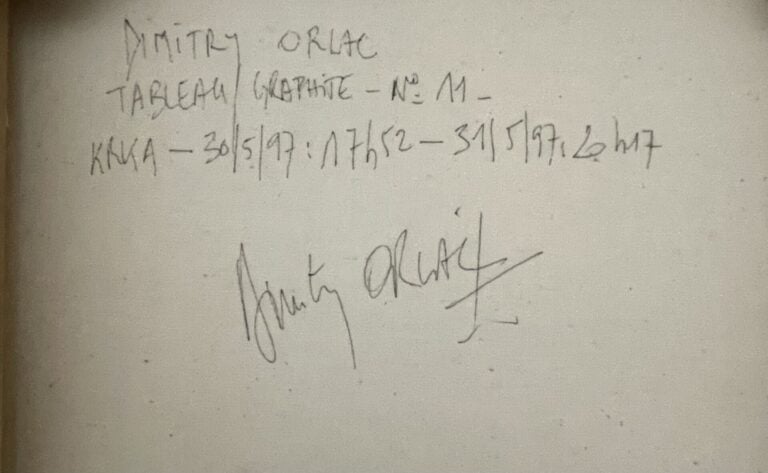 DIMITRY ORLAC
TABLEAU GRAPHITE - Nº 11 -
KRKA - 30/5/97 : 17h52 - 31/5/97. 20h17
Dimitry ORLAC